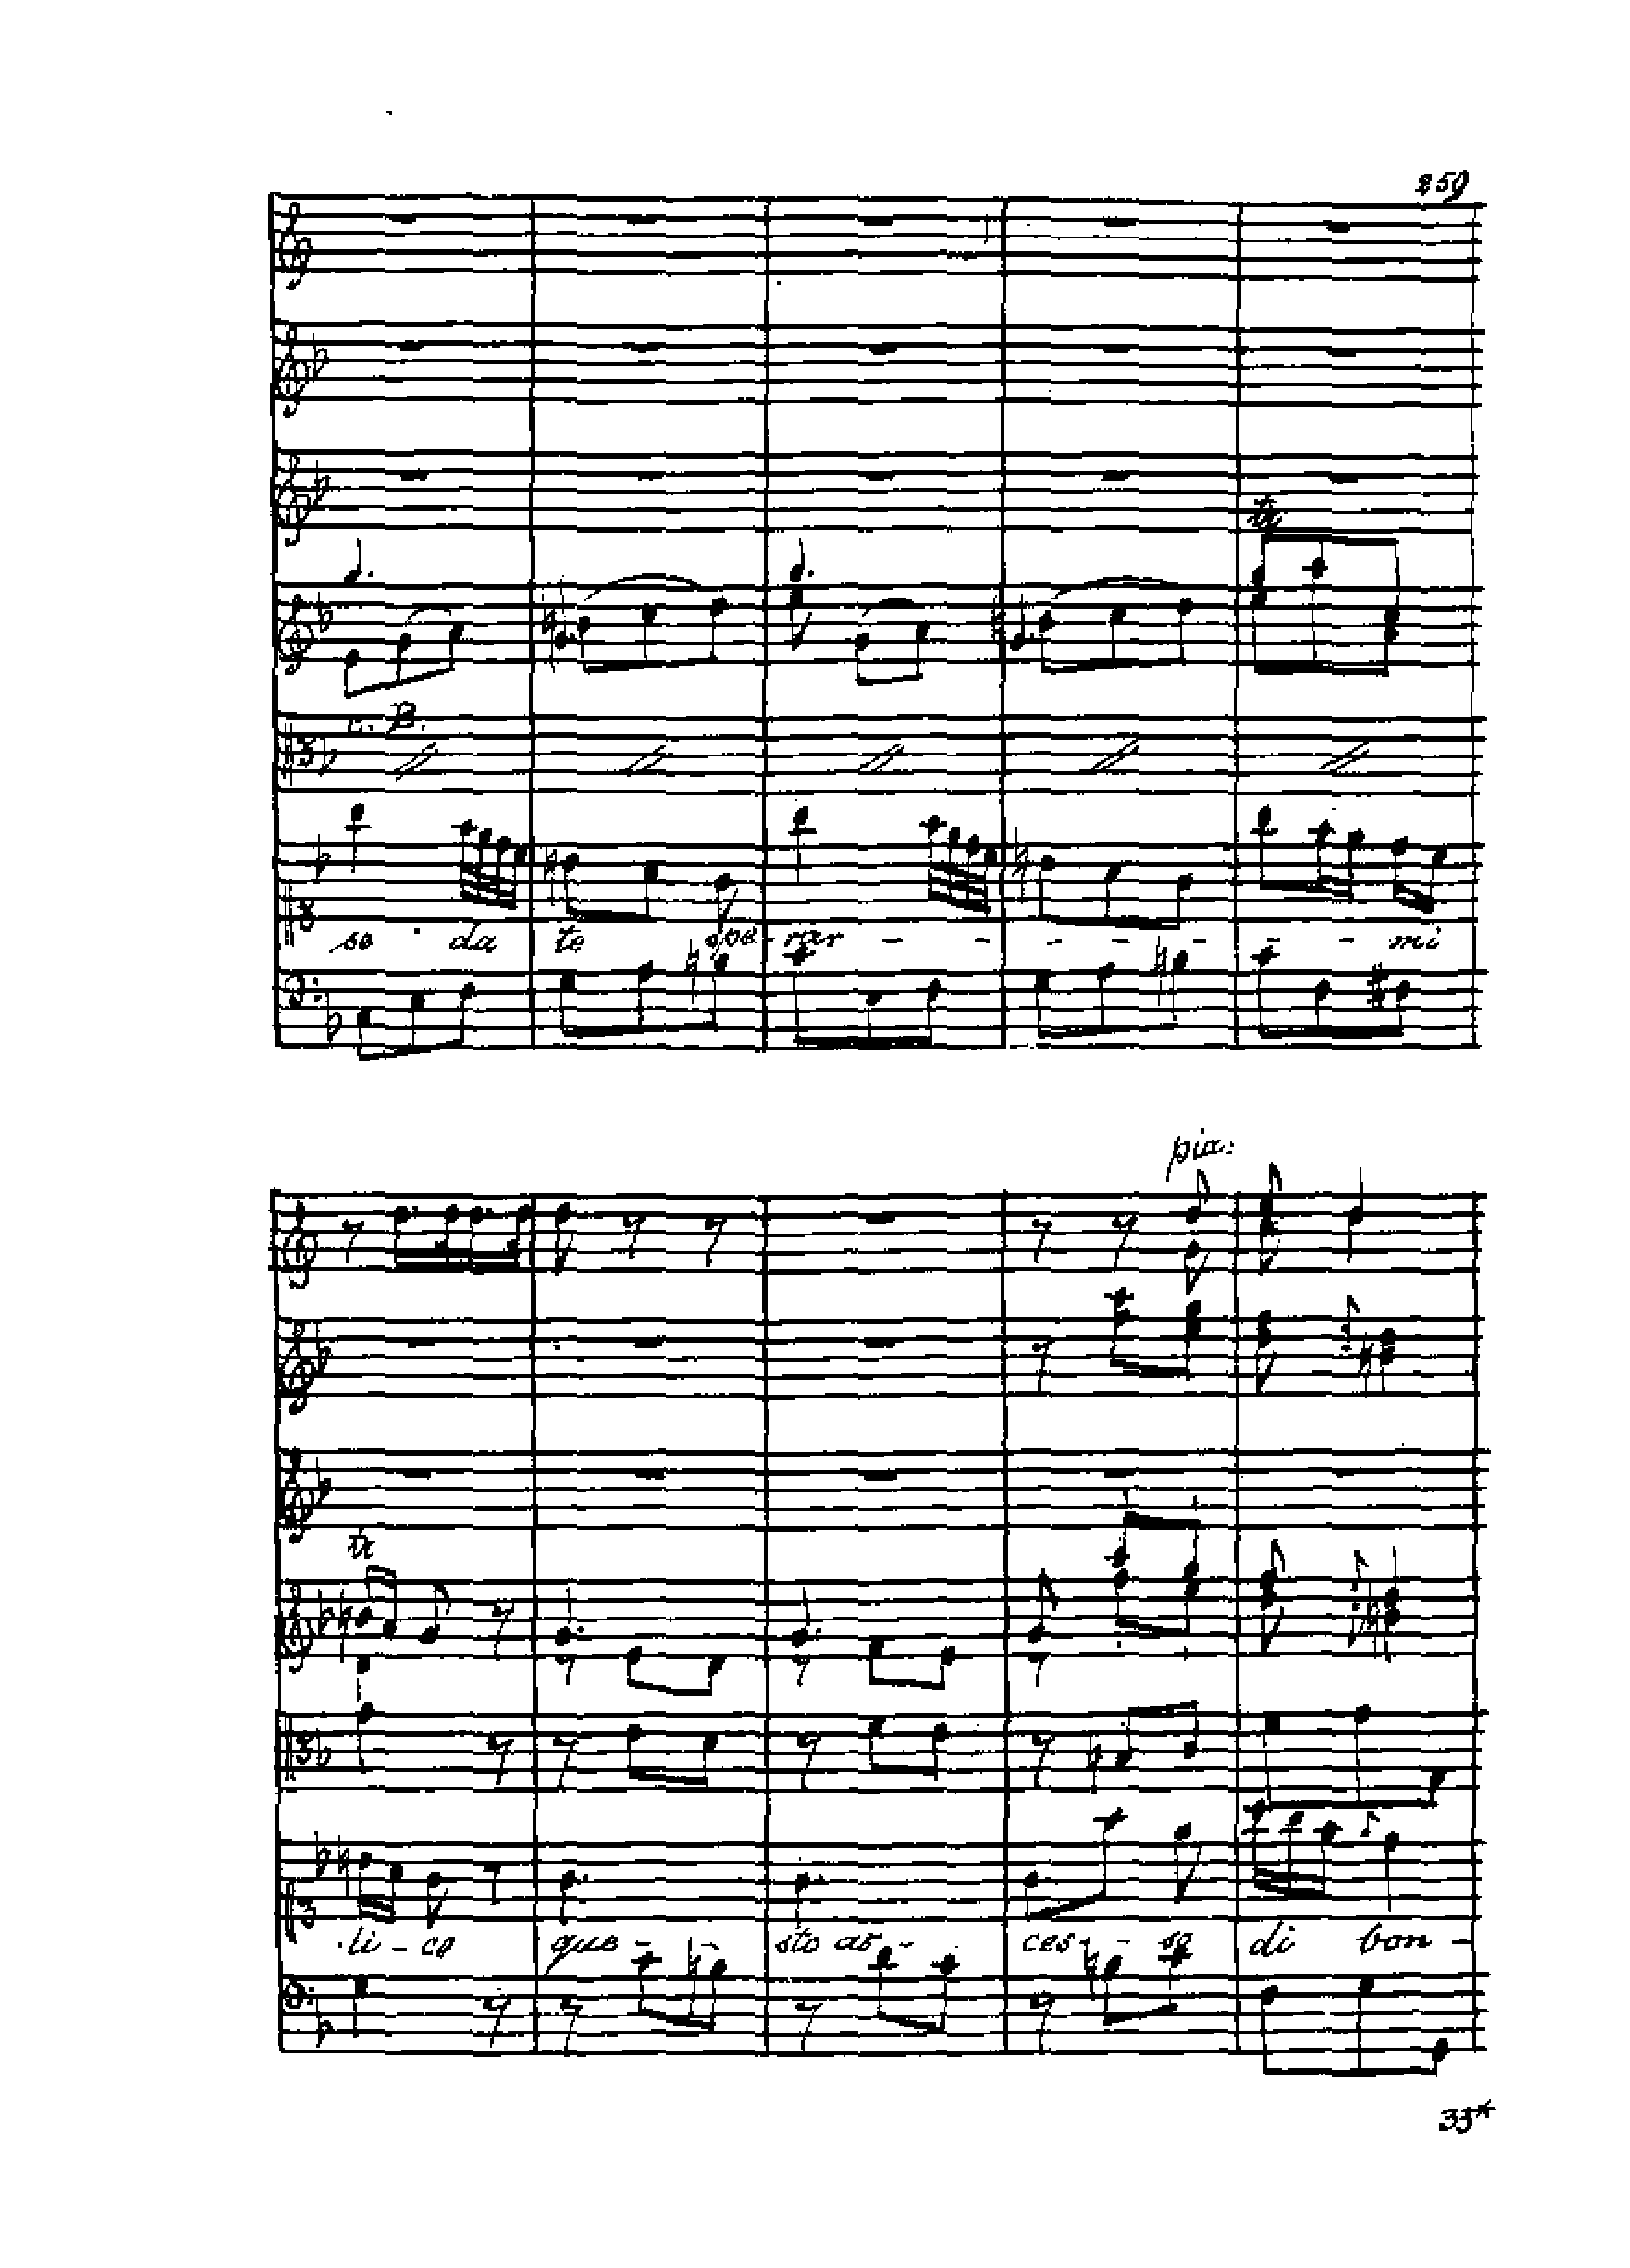 259
tr
c. B.
so da te spe - rar - - - - - - - - mi
pia:
tr
li - ce que - - sto as - ces - - so di bon -
33*